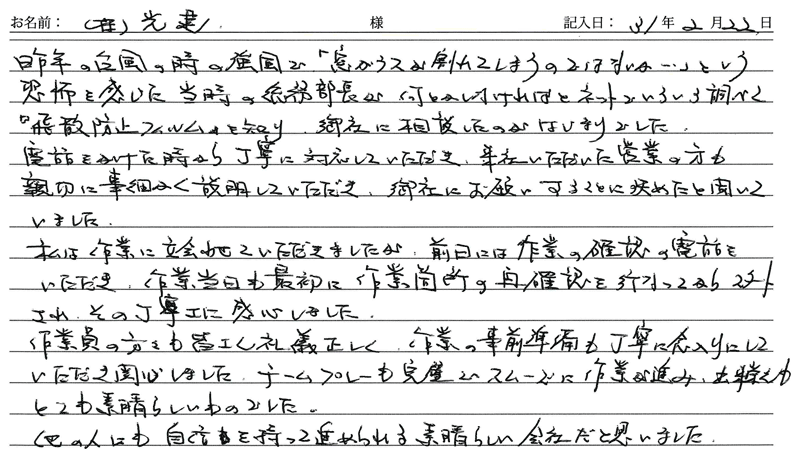 お名前： (有) 光建 様 記入日： 31 年 2 月 22 日
昨年の台風の時の強風で、「窓ガラスが割れてしまうのではないか…」という
恐怖を感じた当時の総務部長が何とかしなければとネットでいろいろ調べて
"飛散防止フィルム"を知り、御社に相談したのがはじまりでした。
電話をかけた時から丁寧に対応していただき、来社いただいた営業の方も
親切に事細かく説明していただき、御社にお願いすることに決めたと聞いて
いました。
私は作業に立会わせていただきましたが、前日には作業の確認の電話を
いただき、作業当日も最初に作業箇所の再確認を行なってからスタート
され、その丁寧さに感心しました。
作業員の方々も皆さん礼儀正しく、作業の事前準備も丁寧に念入りにして
いただき関心しました。チームプレーも完璧でスムーズに作業が進み、出来栄えも
とても素晴らしいものでした。
他の人にも自信を持って進められる素晴らしい会社だと思いました。